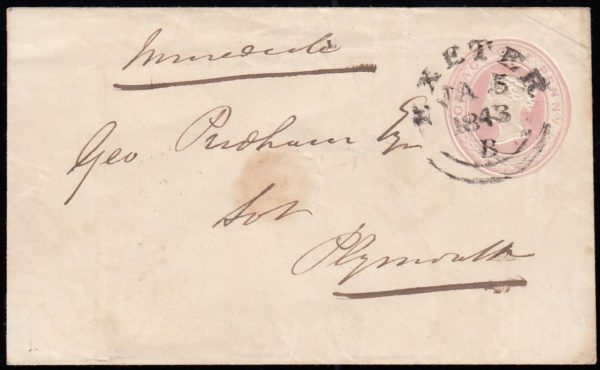 Immediate
Geo Prudham Esq
Sol
Plymouth
EXETER
JA 5
1843
B
POSTAGE ONE PENNY